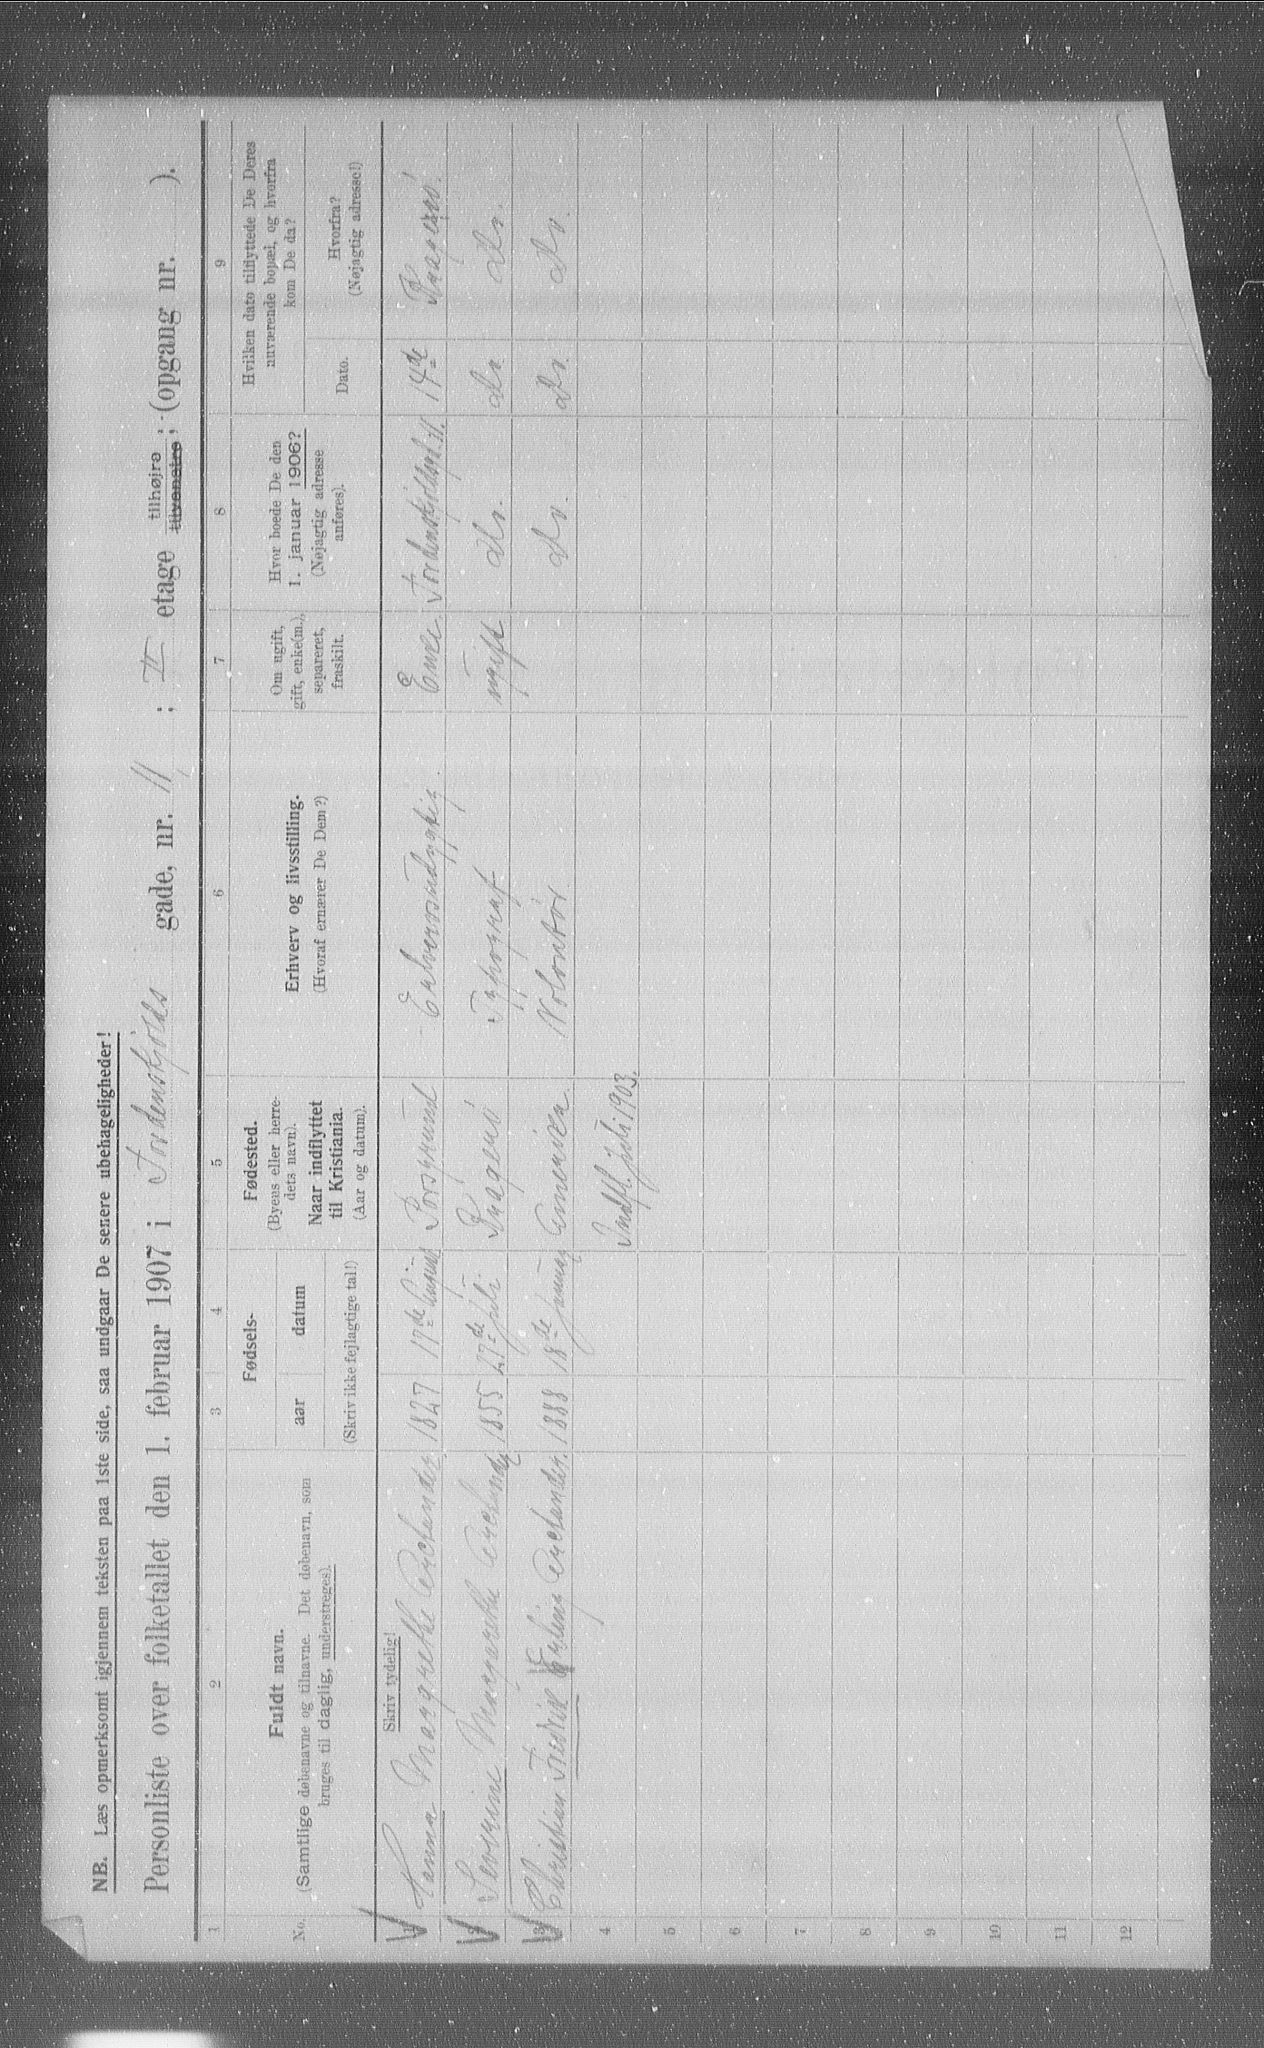 NB. Læs opmerksomt igjennem teksten paa 1ste side, saa undgaar De senere ubehageligheder!
Personliste over folketallet den 1. februar 1907 i Tordenskjolds gade, nr. 11 ; II etage tilhøjre tilvenstre; (opgang nr. ).
1 2 3 4 5 6 7 8 9
No.
Fuldt navn.
(Samtlige døbenavne og tilnavne. Det døbenavn, som
bruges til daglig, understreges).
Fødsels-
aar datum
(Skriv ikke fejlagtige tal!)
Fødested.
(Byens eller herre-
dets navn).
Naar indflyttet
til Kristiania.
(Aar og datum).
Erhverv og livsstilling.
(Hvoraf ernærer De Dem?)
Om ugift,
gift, enke(m.),
separeret,
fraskilt.
Hvor boede De den
1. januar 1906?
(Nøjagtig adresse
anføres).
Hvilken dato tilflyttede De Deres
nuværende bopæl, og hvorfra
kom De da?
Dato.
Hvorfra?
(Nøjagtig adresse!)
Skriv tydelig!
1 Hanna Margrethe 1827 17de August Porsgrund Enke Tordenskjoldsgd. 11. 14de Kragerø.
2 Margarethe 1855 27de juli Kragerø Typograf ugift do. do do.
3 Christian Fredrik 1888 18de januar Amerika. Volontør do. do. do.
4 Indfl. juli 1903.
5
6
7
8
9
10
11
12